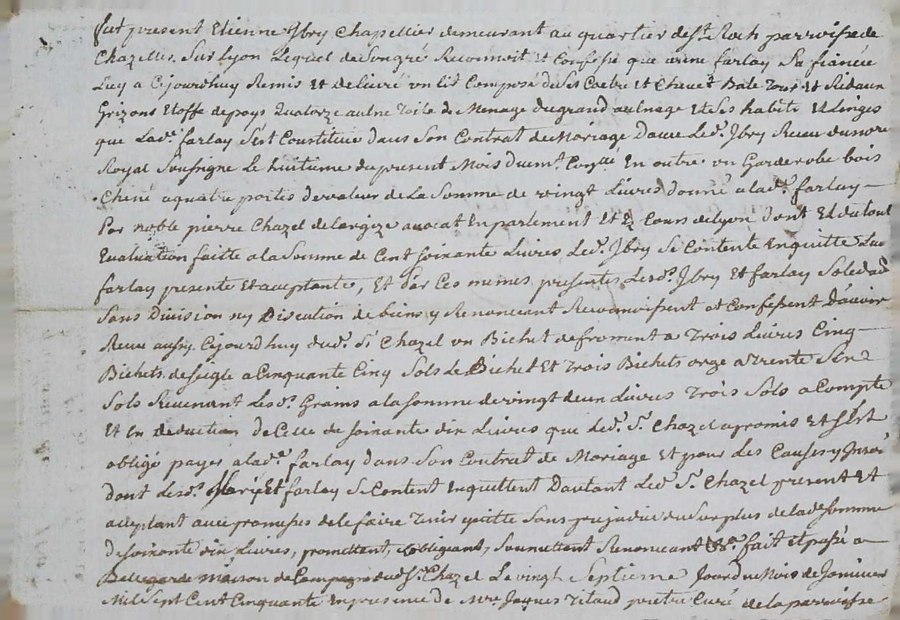 fut present Etienne Ybry Chapellier demeurant au quartier de St. Roch parroisse de
Chazelles Sur Lyon Lequel de Son gré Reconnoit et Confesse que anne farlay Sa fiancée
Luy a Cejourdhuy Remis et delivré un lit Composé du St Coetre et Chevet Bale Tour et Rideaux
Grizons Etoffe de pays Quatorze aulne Toile de Menage du grand aulnage et Ses habits et Linges
que Lade. farlay S'est Constitué dans Son Contrat de Mariage Davec Led. Ybry Receu du notre
Royal Soussigne Le huitieme du present Mois duemt. En outre un Garderobe bois
Chene a quatre portes de valeur de La Somme de vingt Livres donné a lade. farlay
Par noble pierre Chazel avocat En parlement Et Es Cours de Lyon dont Et du tout
Evaluation faitte a la Somme de Cent Soixante Livres Led. Ybry Se Contente En quitte Lad
farlay presente Et acceptante, Et Par Ces mêmes presentes Lesd. Ybry Et farlay Solid
Sans Division ny Discution de biens y Renonceant Reconnoissent et Confessent D'avoir
Receu aussy Cejourdhuy dud. Sr Chazel un Bichet de froment a Trois Livres Cinq
Bichets de Seigle a Cinquante Cinq Sols Le Bichet Et Trois Bichets orge a Trente Sept
Sols Revenant Lesd. Grains a la Somme de vingt deux Livres Trois Sols a Compte
Et En deduction de Celle de Soixante dix Livres que Led. Sr. Chazel a promis Et S'est
obligé payer a lade. farlay dans Son Contrat de Mariage Et pour Les Causes y
dont Lesd. Et farlay Se Content En quittent Dautant Led. Sr. Chazel present Et
acceptant avec promesse de le faire Tenir quitte Sans prejudice du Surplus de lade Somme
De Soixante dix Livres, promettent, obligeant, Soumettent Renonceant &a. fait et passé a
Bellegarde maison de Campagne dud. Sr. Chazel Le vingt Septieme Jour du Mois de Janvier
Mil Sept Cent Cinquante En presence de Mre Jaques pretre Curé de la parroisse